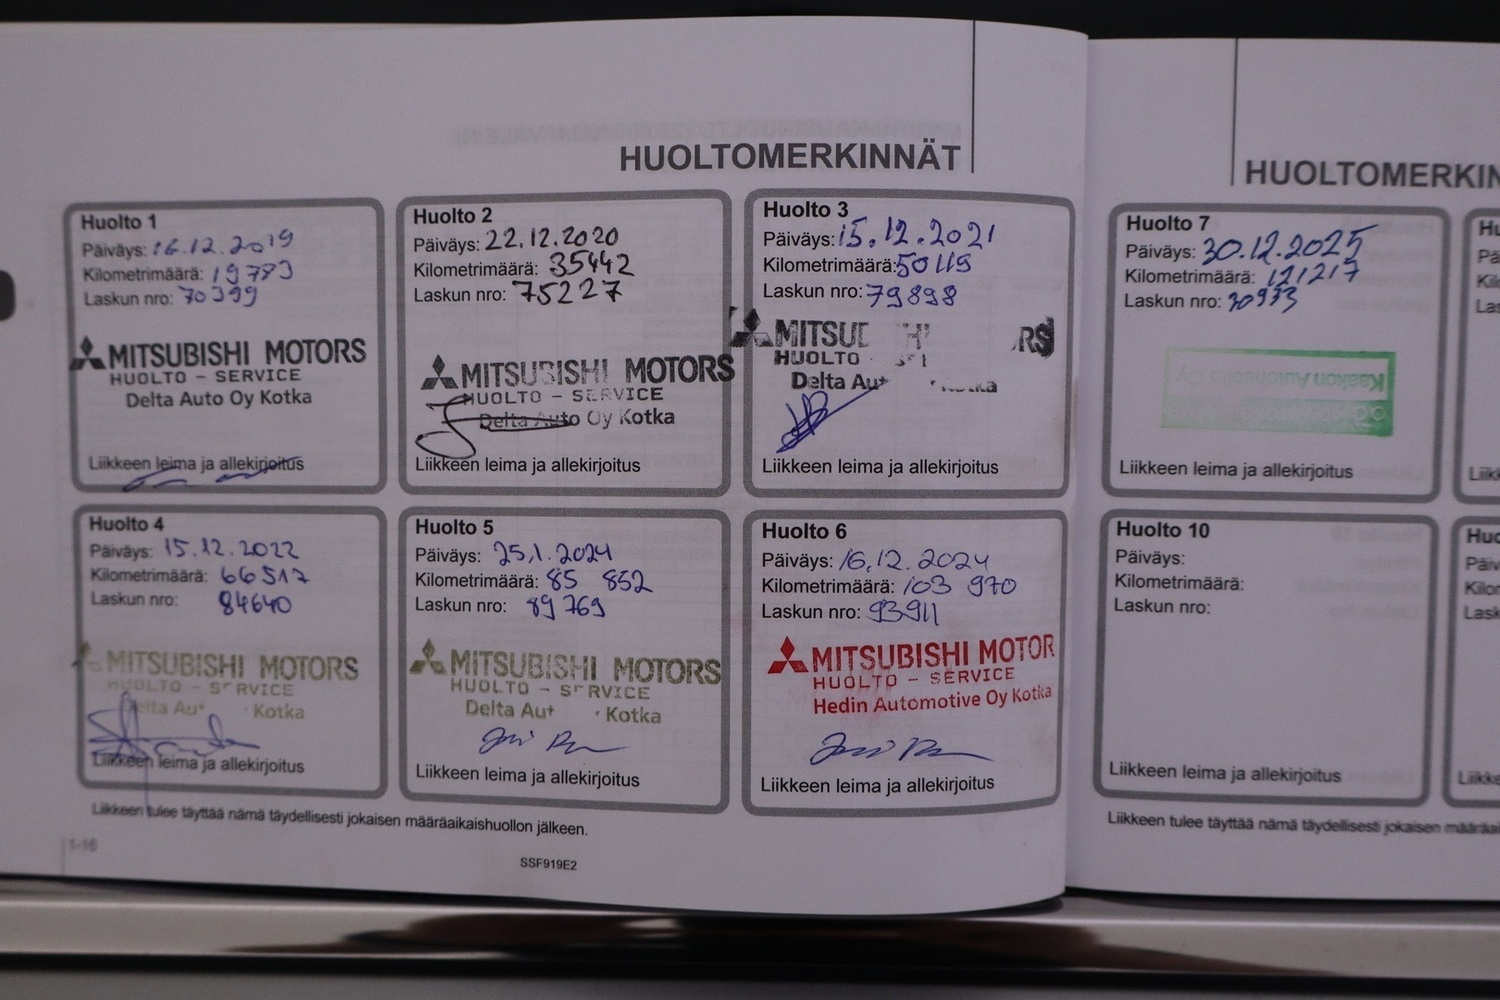 HUOLTOMERKINNÄT
Huolto 1
Päiväys: 16.12.2019
Kilometrimäärä: 19783
Laskun nro: 70399
MITSUBISHI MOTORS
HUOLTO - SERVICE
Delta Auto Oy Kotka
Liikkeen leima ja allekirjoitus
Huolto 2
Päiväys: 22.12.2020
Kilometrimäärä: 35442
Laskun nro: 75227
MITSUBISHI MOTORS
HUOLTO - SERVICE
Delta Auto Oy Kotka
Liikkeen leima ja allekirjoitus
Huolto 3
Päiväys: 15.12.2021
Kilometrimäärä: 50119
Laskun nro: 79898
HUOLTO
Delta
Liikkeen leima ja allekirjoitus
Huolto 4
Päiväys: 15.12.2022
Kilometrimäärä: 66517
Laskun nro: 84640
MITSUBISHI MOTORS
HUOLTO - SERVICE
Delta Kotka
Liikkeen leima ja allekirjoitus
Huolto 5
Päiväys: 25.1.2024
Kilometrimäärä: 85 852
Laskun nro: 89 769
MITSUBISHI MOTORS
HUOLTO - SERVICE
Delta Kotka
Liikkeen leima ja allekirjoitus
Huolto 6
Päiväys: 16.12.2024
Kilometrimäärä: 103 970
Laskun nro: 93911
MITSUBISHI MOTOR
HUOLTO - SERVICE
Hedin Automotive Oy Kotka
Liikkeen leima ja allekirjoitus
Liikkeen tulee täyttää nämä täydellisesti jokaisen määräaikaishuollon jälkeen.
1-16
SSF919E2
HUOLTOMERKIN
Huolto 7
Päiväys: 30.12.2025
Kilometrimäärä: 121217
Laskun nro: 30933
Kaakon Autohuolto Oy
Liikkeen leima ja allekirjoitus
Huolto 10
Päiväys:
Kilometrimäärä:
Laskun nro:
Liikkeen leima ja allekirjoitus
Liikkeen tulee täyttää nämä täydellisesti jokaisen